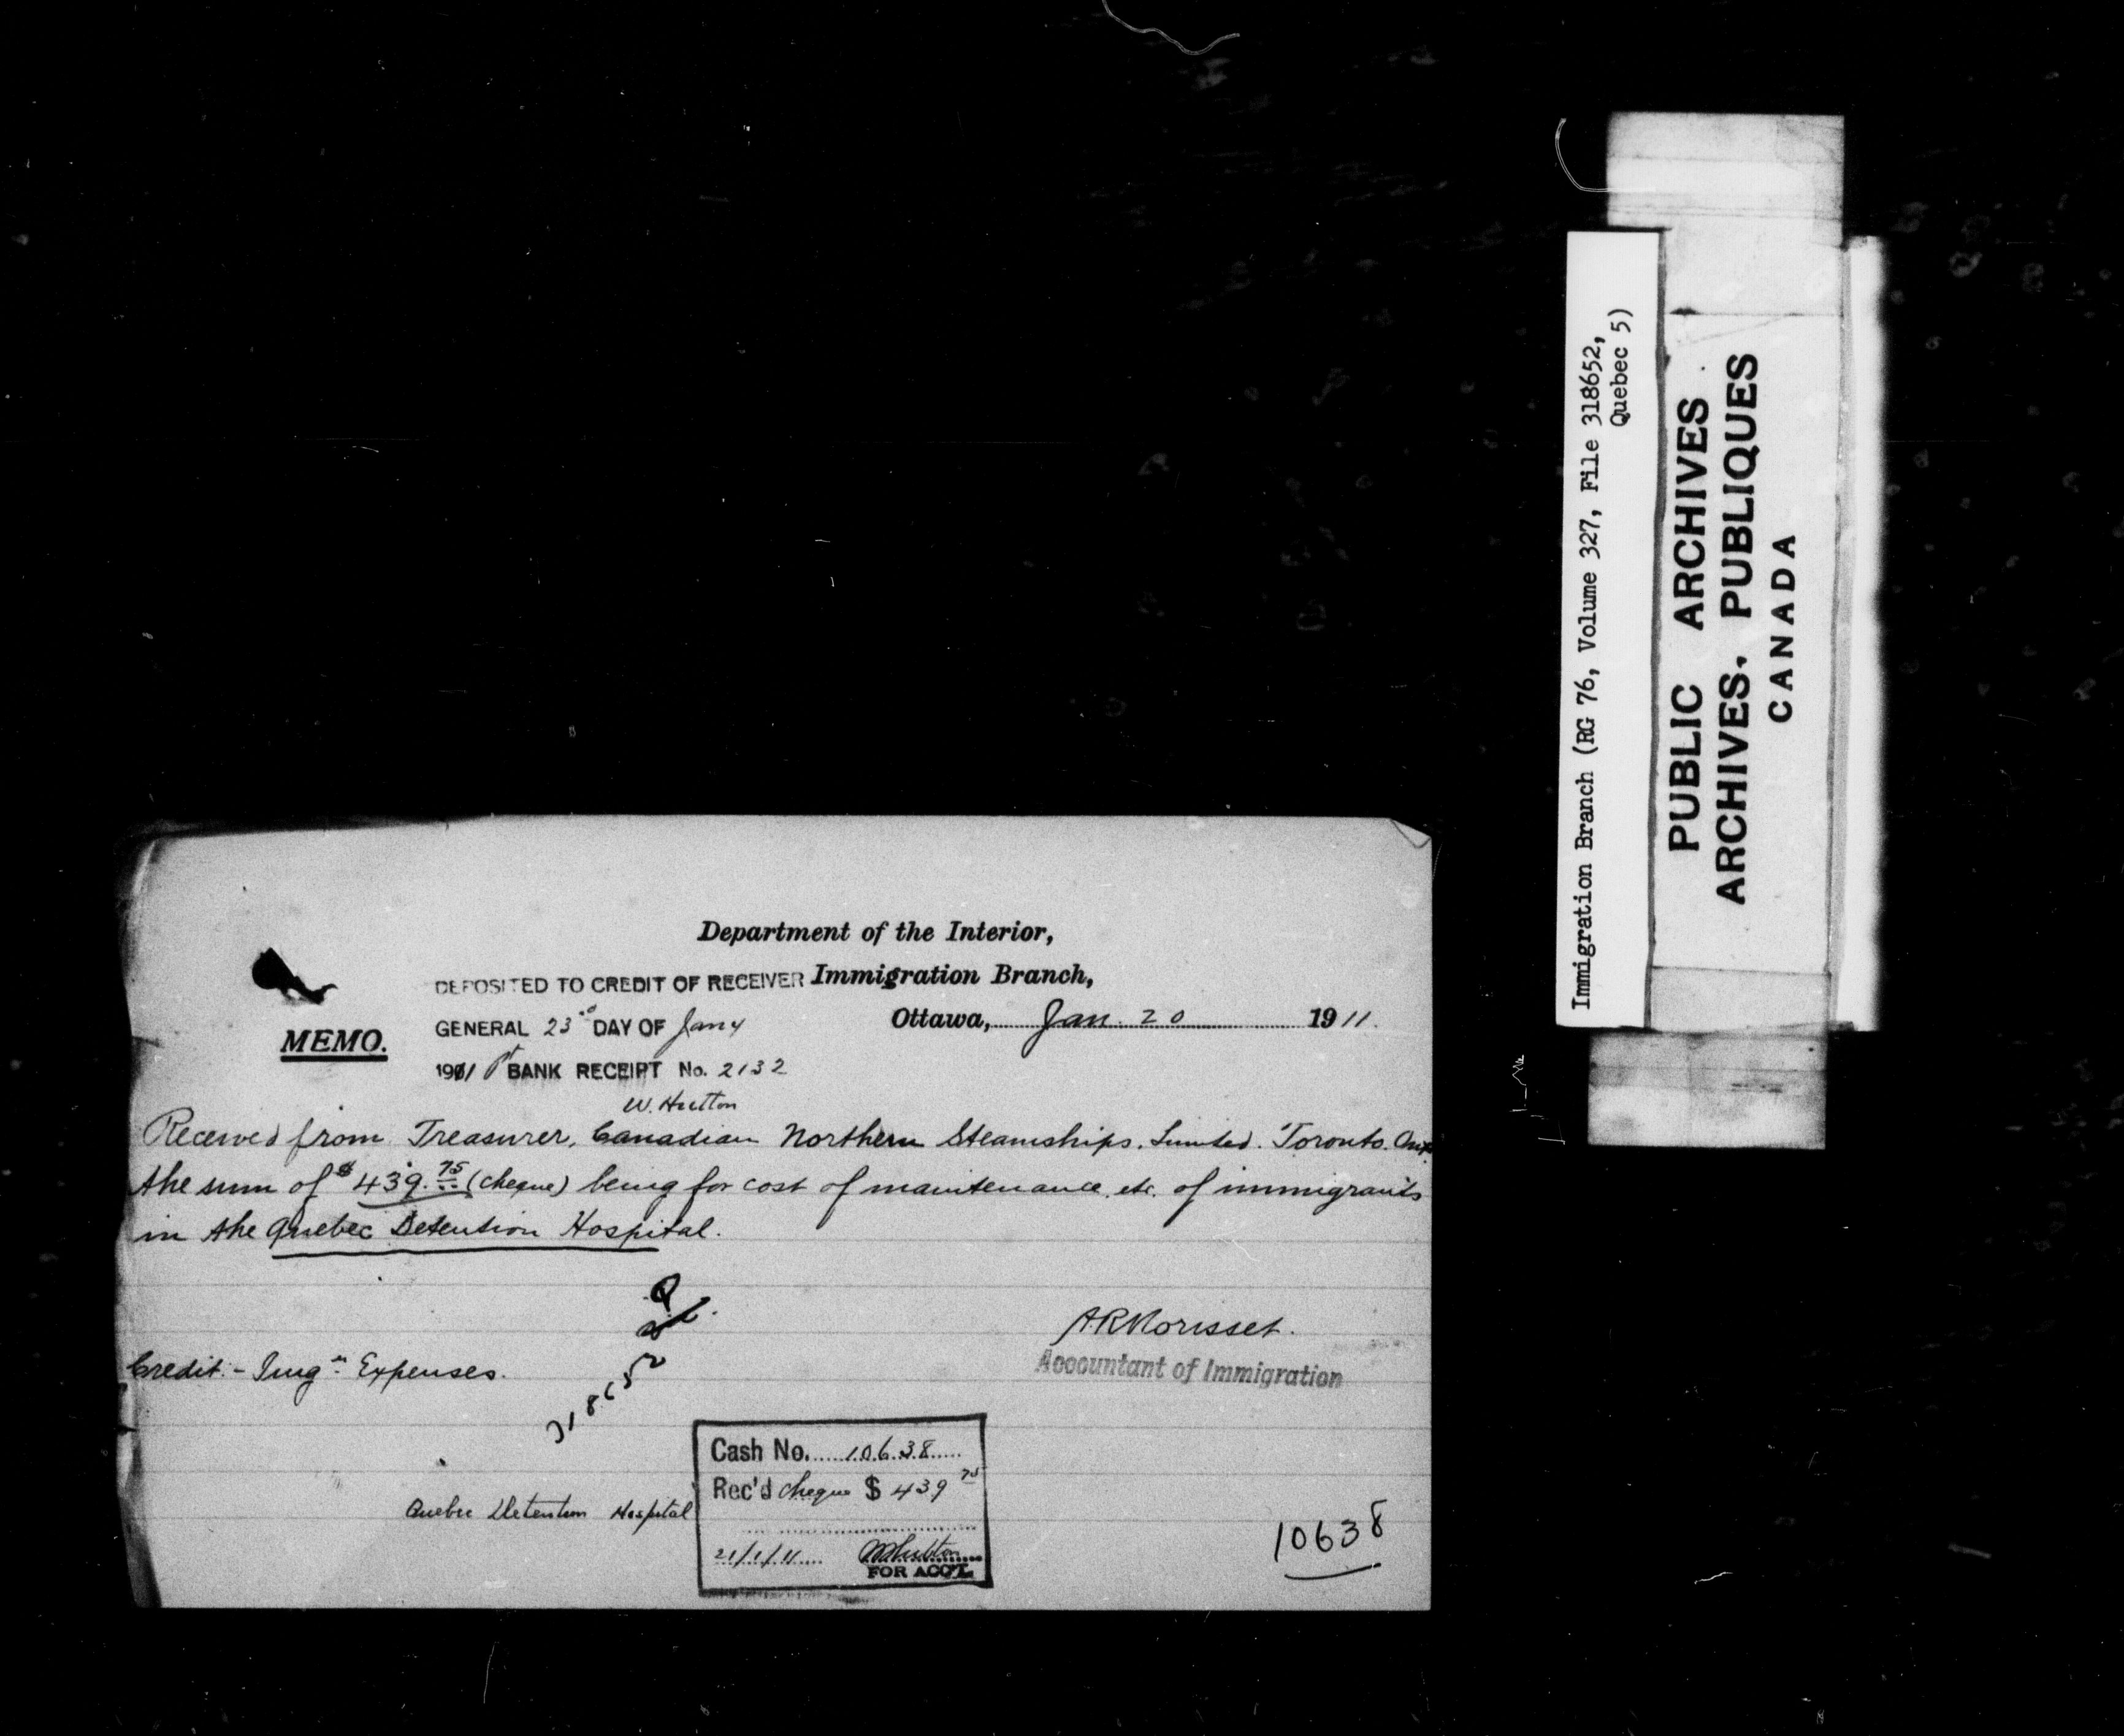 Department of the Interior,
Immigration Branch,
Ottawa, Jan. 20 1911.
MEMO.
DEPOSITED TO CREDIT OF RECEIVER
GENERAL 23rd DAY OF Jany
1911 BANK RECEIPT No. 2132
W. Hutton
Received from Treasurer, Canadian Northern Steamships, Limited. Toronto. Ont
the sum of $439.75 (cheque) being for cost of maintenance, etc. of immigrants
in the Quebec Detention Hospital.
Q
A R Morisset.
Accountant of Immigration
Credit:- Imgn Expenses.
318652
Cash No. 10638
Rec'd cheque $ 439 75
Quebec Detention Hospital
21/1/11 W Hutton
FOR ACC'T.
10638
Immigration Branch (RG 76, Volume 327, File 318652,
Quebec 5)
PUBLIC ARCHIVES
ARCHIVES. PUBLIQUES
CANADA